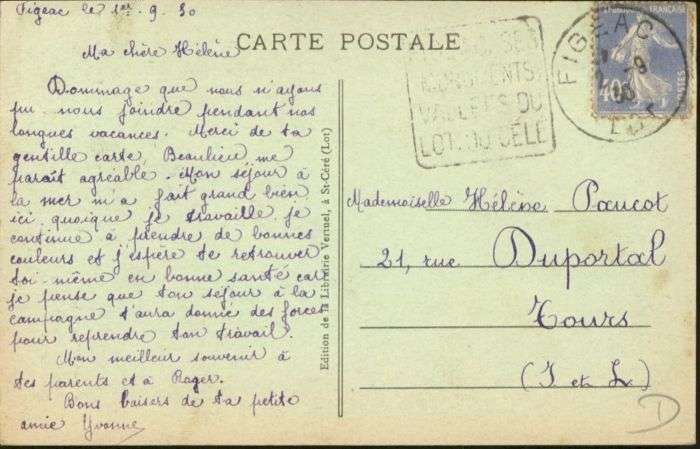 Figeac le 1er. 9. 30
Ma chère Hélène
Dommage que nous n'ayons
pu nous joindre pendant nos
longues vacances. Merci de ta
gentille carte, Beaulieu me
paraît agréable. Mon séjour à
la mer m'a fait grand bien
ici, quoique je travaille, je
continue à prendre de bonnes
couleurs et j'espère te retrouver
toi-même en bonne santé car
je pense que ton séjour à la
campagne t'aura donné des forces
pour reprendre ton travail.
Mon meilleur souvenir à
tes parents et à Roger.
Bons baisers de ta petite
amie Yvonne
CARTE POSTALE
Edition de la Librairie Vertuel, à St-Céré (Lot)
MONUMENTS
VALLÉES DU
LOT. DU CÉLÉ
FIGEAC
9
30
LOT
FRANÇAISE
POSTES
40c
Mademoiselle Hélène Paucot
21, rue Duportal
Tours
(I et L)
D